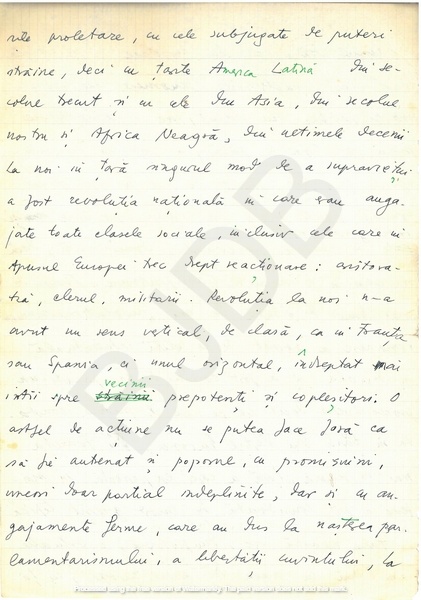 țile proletare, cu cele subjugate de puteri
străine, deci cu țările America Latină din se-
colul trecut și cu cele din Asia, din secolul
nostru și Africa Neagră, din ultimele decenii
La noi în țară singurul mod de a supraviețui
a fost revoluția națională în care erau anga-
jate toate clasele sociale, inclusiv cele care în
Apusul Europei trec drept reacționare: aristocra-
ția, clerul, militarii. Revoluția la noi n-a
avut un sens vertical, de clasă, ca în Franța
sau Spania, ci unul orizontal, îndreptat mai
întîi spre vecinii prepotenți și copleșitori. O
astfel de acțiune nu se putea face fără ca
să fie antrenat și poporul, cu promisiuni,
uneori doar parțial îndeplinite, dar și cu an-
gajamente ferme, care au dus la nașterea par-
lamentarismului, a libertății cuvîntului, la
BJDB